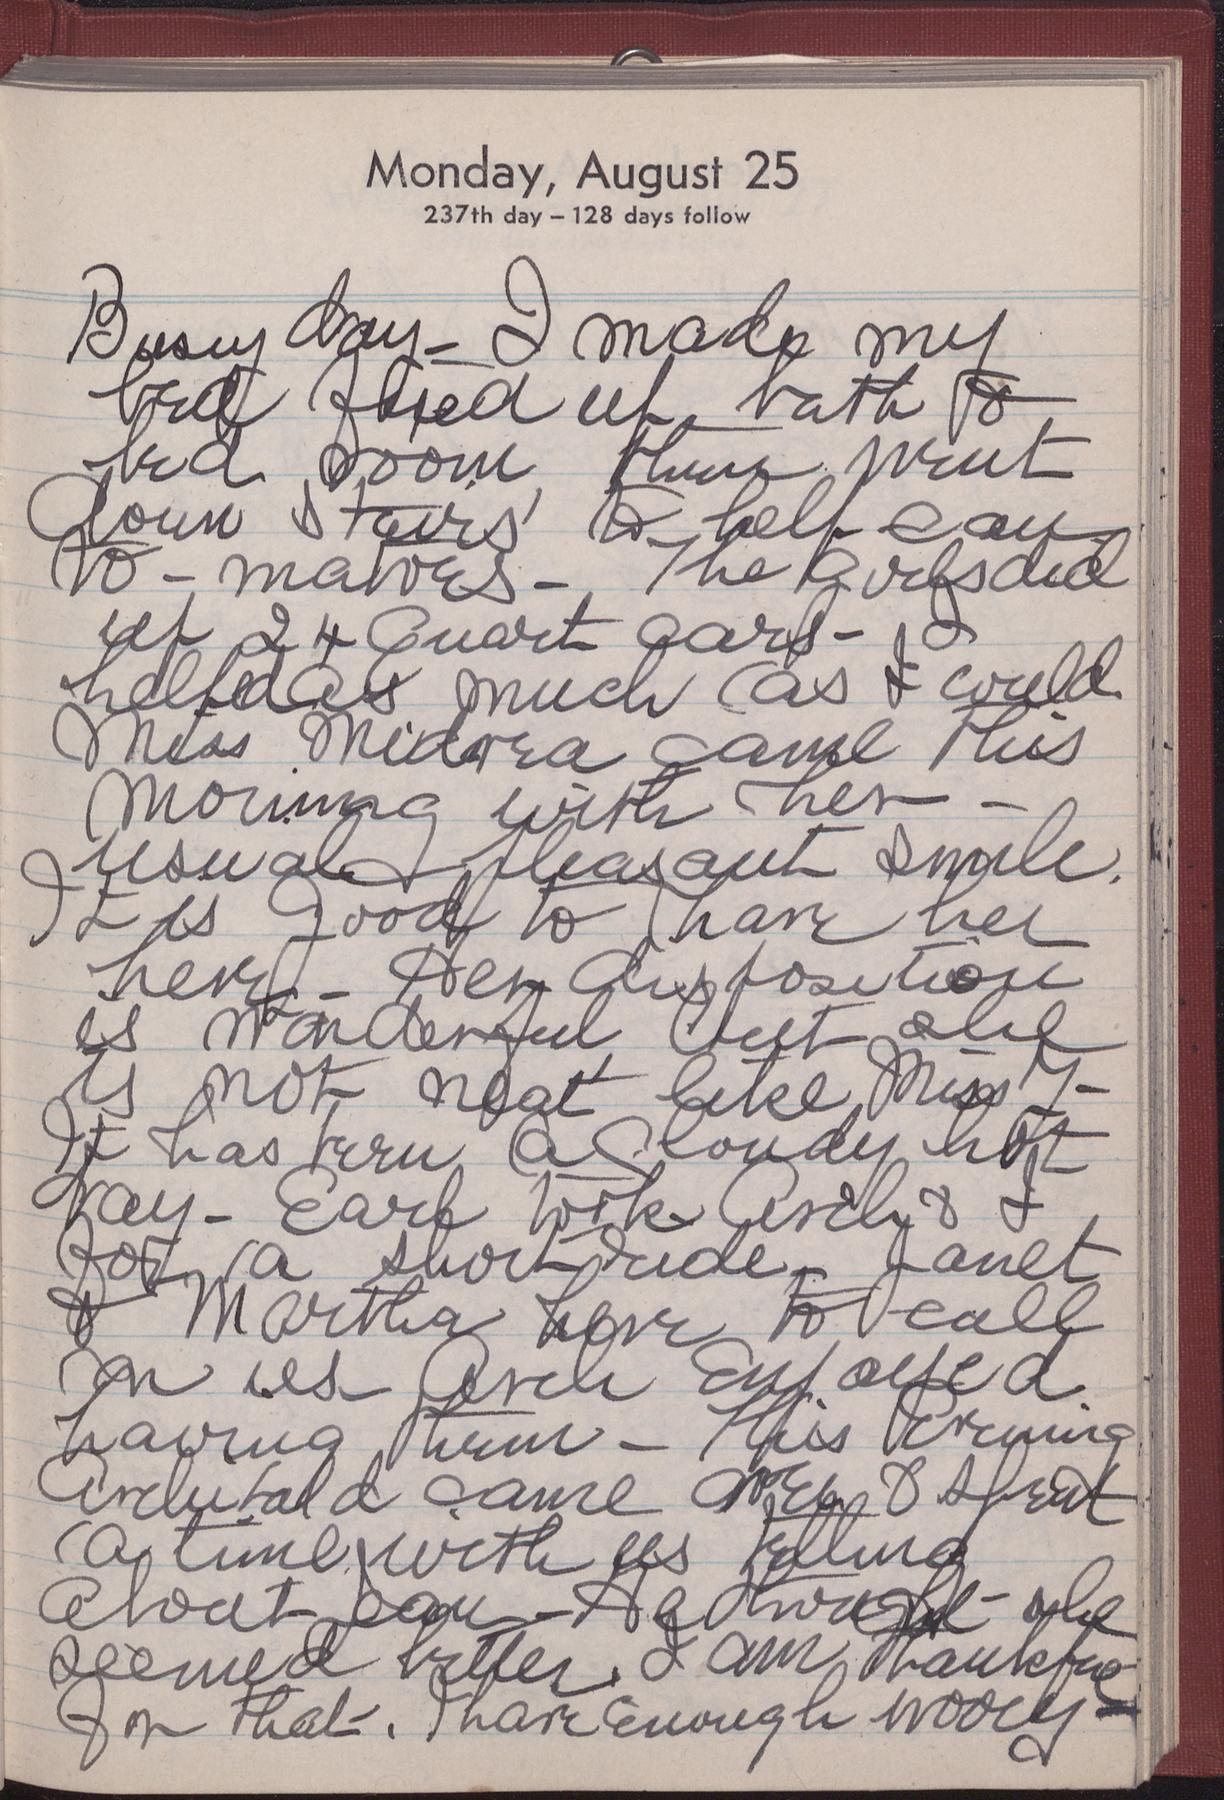 Monday, August 25
237th day – 128 days follow
Busy day – I made my
bed fixed up bath &
bed room then went
Down stairs to help can
to-matoes – The girls did
up 24 Quart jars – I
helped as much as I could
Miss Midrea came this
morning with her –
usual pleasant smile.
It is good to have her
here – Her disposition
is wonderful but she
is not neat like Miss Y–
It has been a Cloudy hot
day – Earl took Arch & I
for a short ride – Janet
& Martha here to call
on us Arch Enjoyed
having them – This Evening
Archibald came over & spent
a time with us telling
about – He thought she
seemed better. I am thankful
for that. I have Enough worry –